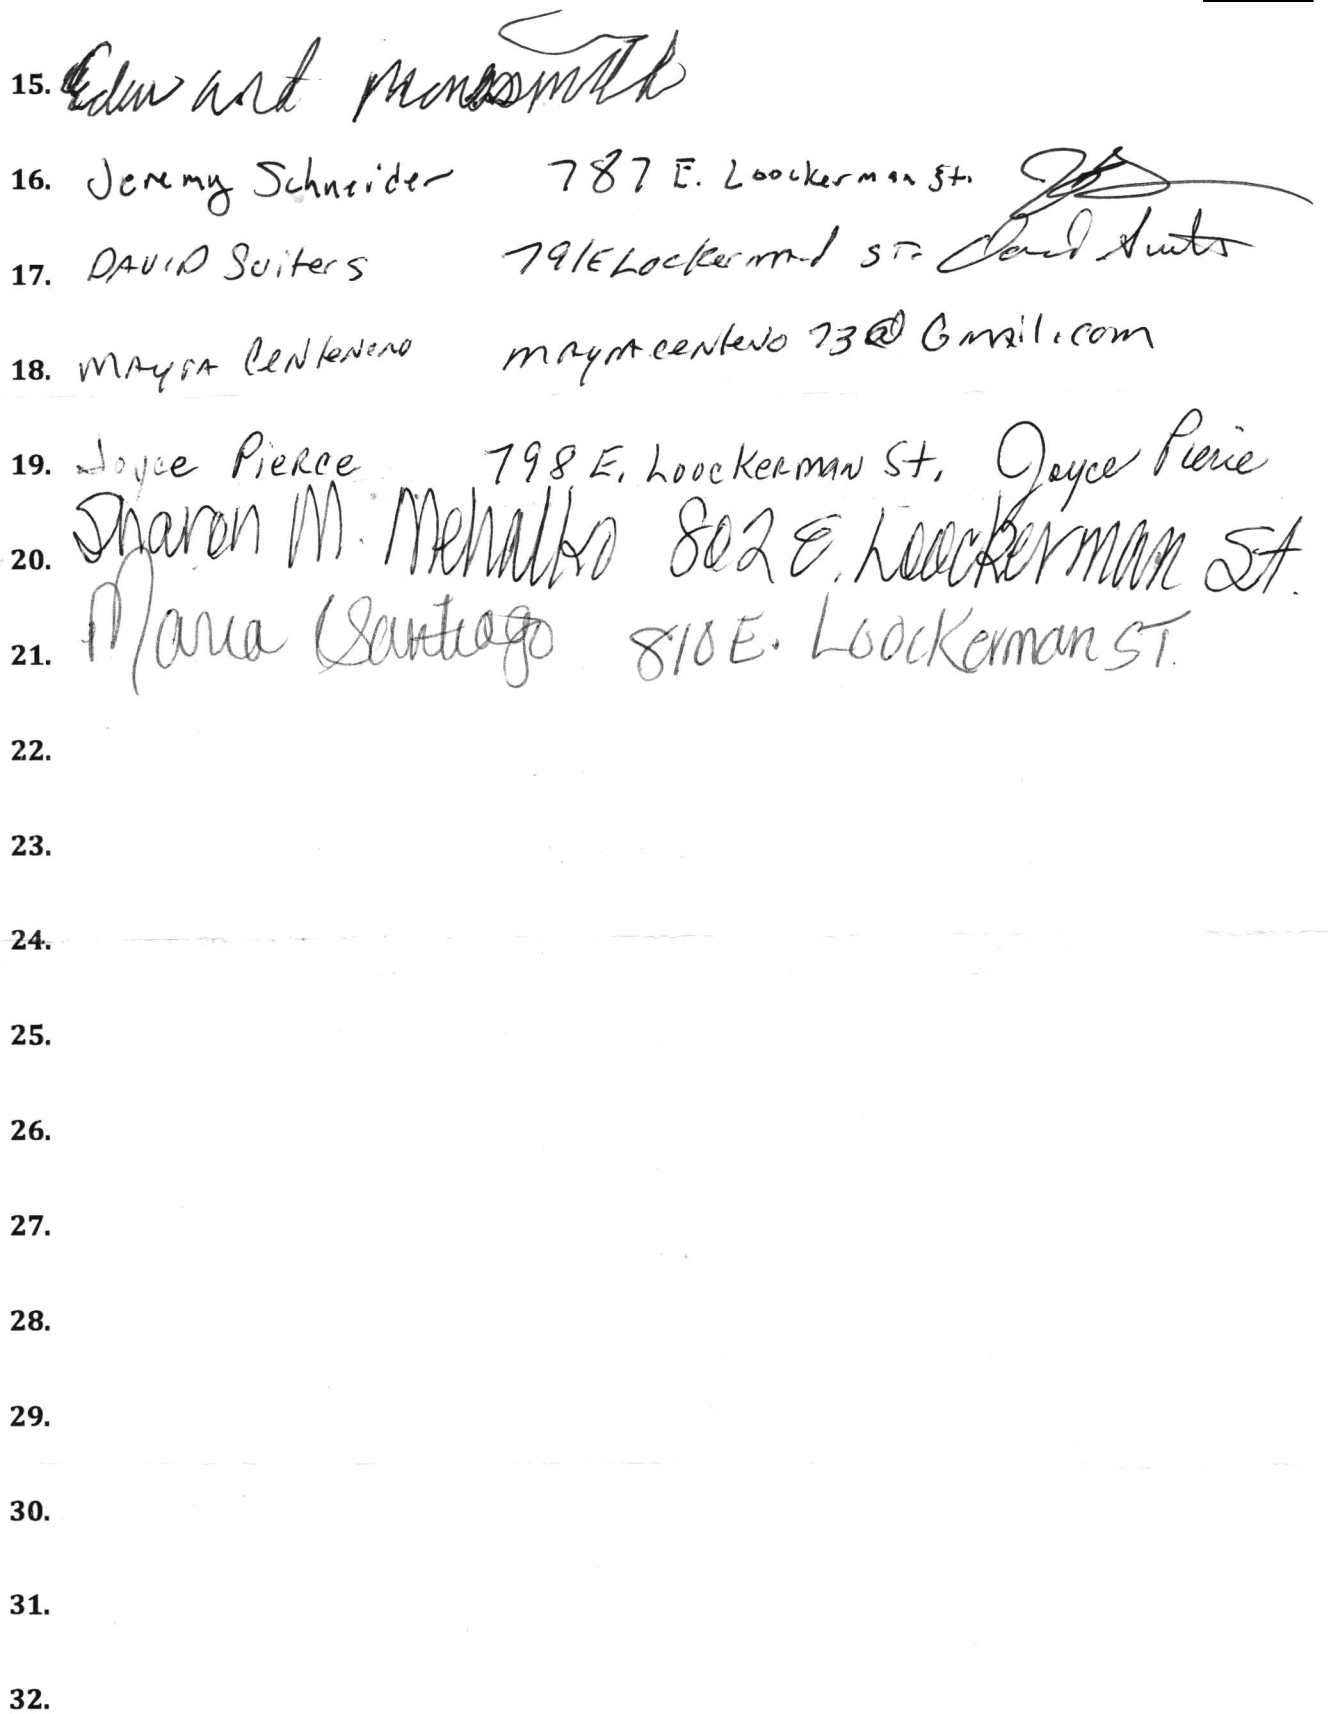 15. Edward Monasmith
16. Jeremy Schneider 787 E. Loockerman St.
17. DAVID Suiters 791 E Lockermand ST. David Suiters
18. MAyrA CENtENENO mAyrAcentevo 73@Gmail.com
19. Joyce PiERce 798 E. LoocKERMAN St. Joyce Pierce
20. Sharon M. Mehalko 802 E. Loockerman St.
21. Maria Santiago 810 E. Loockerman ST.
22.
23.
24.
25.
26.
27.
28.
29.
30.
31.
32.